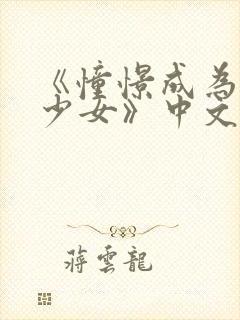 《憧憬成为
少女》中文
蒋雲龍